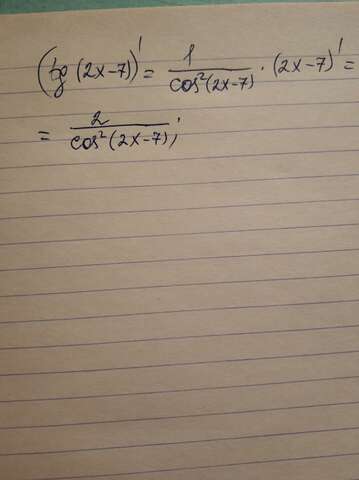 (tg (2x-7))' = 1/cos²(2x-7) · (2x-7)' =
= 2/cos²(2x-7);